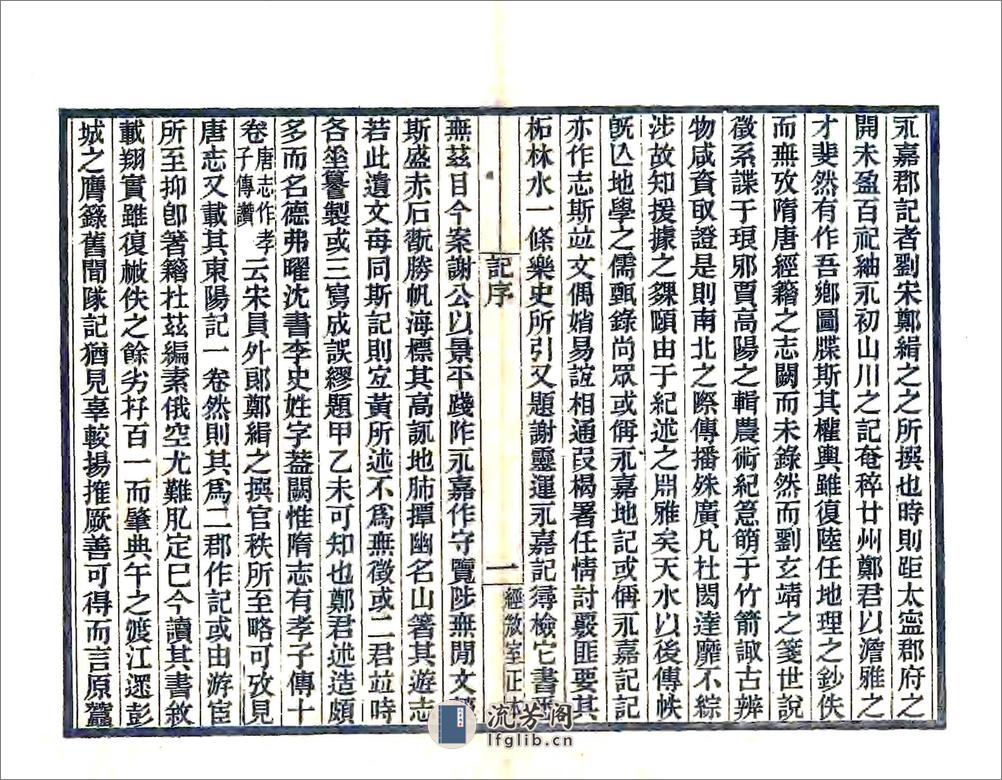 永嘉郡記者劉宋鄭緝之之所撰也時則距太寍郡府之
開未盈百祀紬永初山川之記奄稡廿州鄭君以澹雅之
才斐然有作吾鄉圖牒斯其權輿雖復陸任地理之鈔佚
而無攷隋唐經籍之志闕而未錄然而劉玄靖之箋世說
徵系諜于琅邪賈高陽之輯農術紀筤箾于竹箭諏古辨
物咸資取證是則南北之際傳播殊廣凡杜閎達靡不綜
涉故知援據之夥頤由于紀述之淵雅矣天水以後傳帙
旣亾地學之儒甄錄尚眾或偁永嘉地記或偁永嘉記記
亦作志斯竝文偶媘易誼相通叚楬署任情討覈匪要其
柘林水一條樂史所引又題謝靈運永嘉記尋檢它書
記序
一
經
室正本
無茲目今案謝公以景平踐阼永嘉作守覽陟無閒文
斯盛赤石翫勝帆海標其高訊地肺撢幽名山箸其遊志
若此遺文每同斯記則宐黃所述不爲無徵或二君竝時
各垂纂製或三寫成誤繆題甲乙未可知也鄭君述造頗
多而名德弗曜沈書李史姓字蓋闕惟隋志有孝子傳十
卷唐志作孝子傳讚云宋員外郎鄭緝之撰官秩所至略可攷見
唐志又載其東陽記一卷然則其爲二郡作記或由游宦
所至抑卽箸籍杜茲編素俄空尤難肊定巳今讀其書敘
載翔實雖復樧佚之餘劣存百一而肇典午之渡江遝彭
城之膺籙舊聞隊記猶見辜較揚搉厥善可得而言原蠶
流芳阁
lfglib.cn